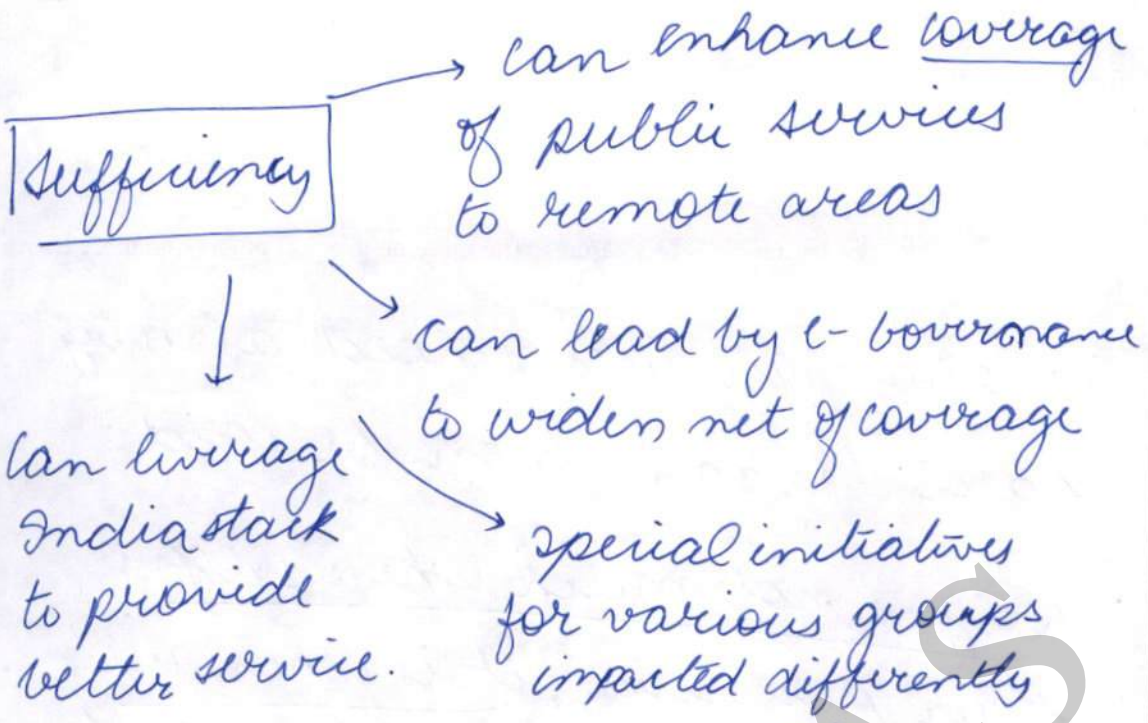 Sufficiency
can enhance coverage
of public services
to remote areas
can lead by e-Governance
to widen net of coverage
special initiatives
for various groups
impacted differently
Can leverage
India stack
to provide
better service.
S